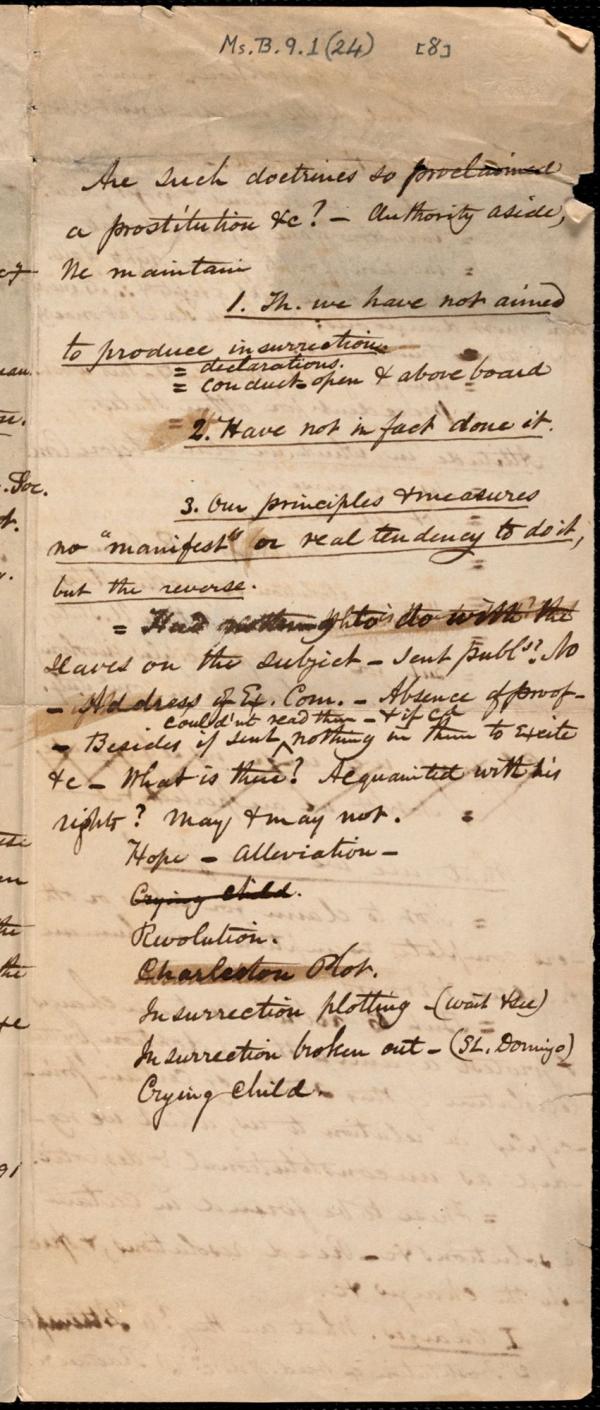 Ms.B.9.1(24) [8]
Are such doctrines so proclaimed
a prostitution &c? - Authority aside,
We maintain
1. Th. we have not aimed
to produce insurrection.
= declarations.
= conduct open & above board
2. Have not in fact done it.
3. Our principles & measures
no "manifest" or real tendency to do it,
but the reverse.
= Had nothing to do with the
slaves on the subject - sent publs? No
- Address of Ex. Com. - Absence of proof -
couldn't read them - & if cd
- Besides if sent, nothing in them to excite
&c - What is there? Acquainted with his
rights? May & may not.
Hope - Alleviation -
Crying child.
Revolution.
Charleston Plot.
Insurrection plotting - (wait & see)
Insurrection broken out - (St. Domigo)
Crying child.